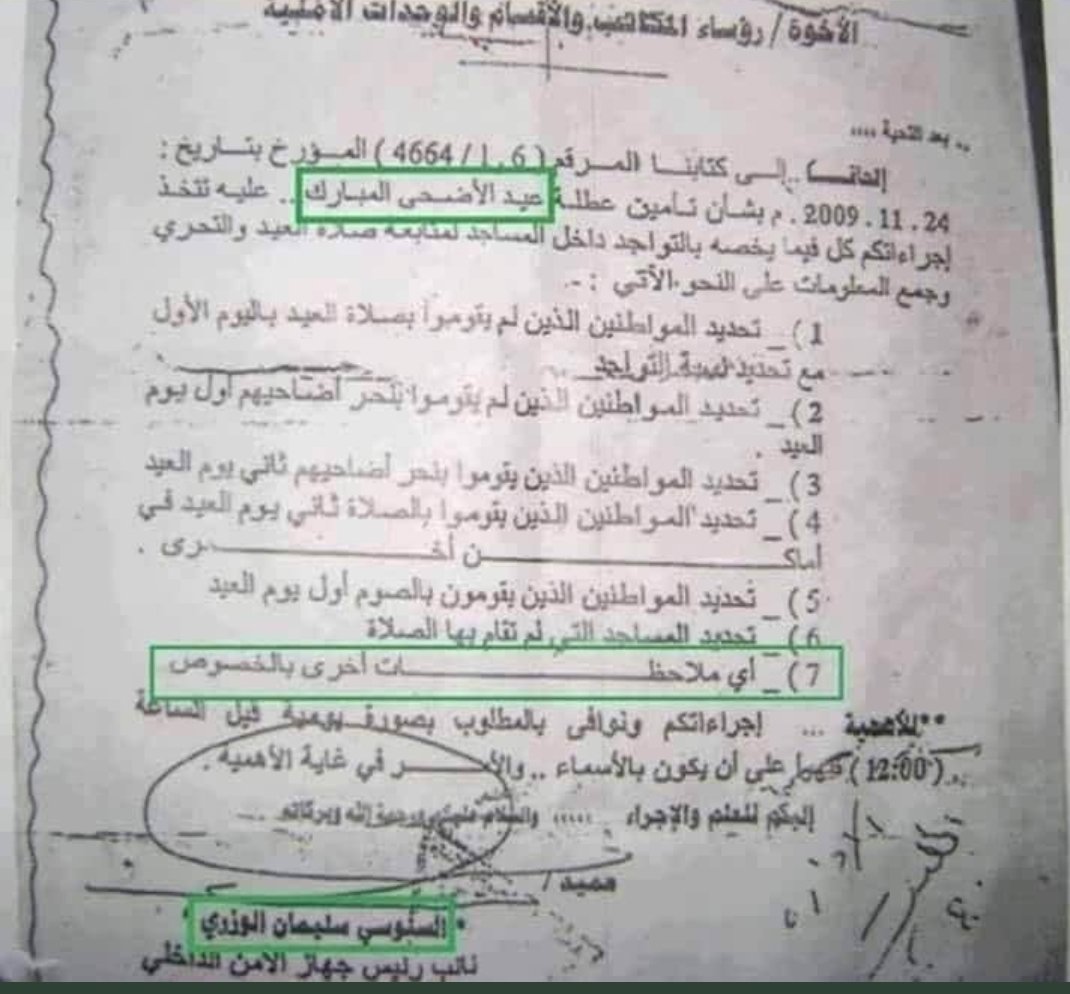 الأخوة / رؤساء المكاتب والأقسام والوحدات الأمنية
.. بعد التحية ....
إلحاقـــا .. إلــى كتابنــا المــرقم ( 4664 / 1 . 6 ) المــؤرخ بتــاريخ :
24 . 11 . 2009 . م بشــأن تــأمين عطلــة عيــد الأضــحى المبــارك .. عليــه تتخــذ
إجراءاتكم كل فيما يخصه بالتواجد داخل المساجد لمتابعة صلاة العيد والتحري
وجمع المعلومات على النحو الآتي : -
1 ) _ تحديد المواطنين الذين لم يقوموا بصــلاة العيد بــاليوم الأول
مع تحديد التواجد
2 ) _ تحديــد المــواطنين الــذين لم يقومــوا بنحر أضــاحيهم أول يوم
العيد .
3 ) _ تحديد المواطنين الذين يقوموا بنحر أضاحيهم ثاني يوم العيد
4 ) _ تحديد المواطنين الذين يقوموا بالصلاة ثــاني يوم العيد فــي
أماكــــــــن أخــــــــرى .
5 ) _ تحديد المواطنين الذين يقومون بالصوم أول يوم العيد
6 ) _ تحديد المساجد التي لم تقام بها الصلاة
7 ) _ أي ملاحظــــــــــات أخرى بالخصوص
**للأهمية ... إجراءاتكم ونوافى بالمطلوب بصورة يومية قبل الساعة
( 12:00 ) علي أن يكون بالأسماء .. والأمــــر في غاية الأهمية .
إليكم للعلم والإجراء ..... والسلام عليكم ورحمة الله وبركاته
عميد /
* السنوسي سليمان الوزري
نائب رئيس جهاز الأمن الداخلي